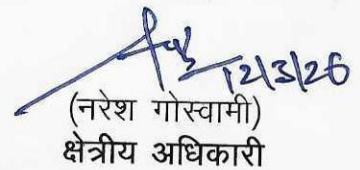 12/3/26
(नरेश गोस्वामी)
क्षेत्रीय अधिकारी